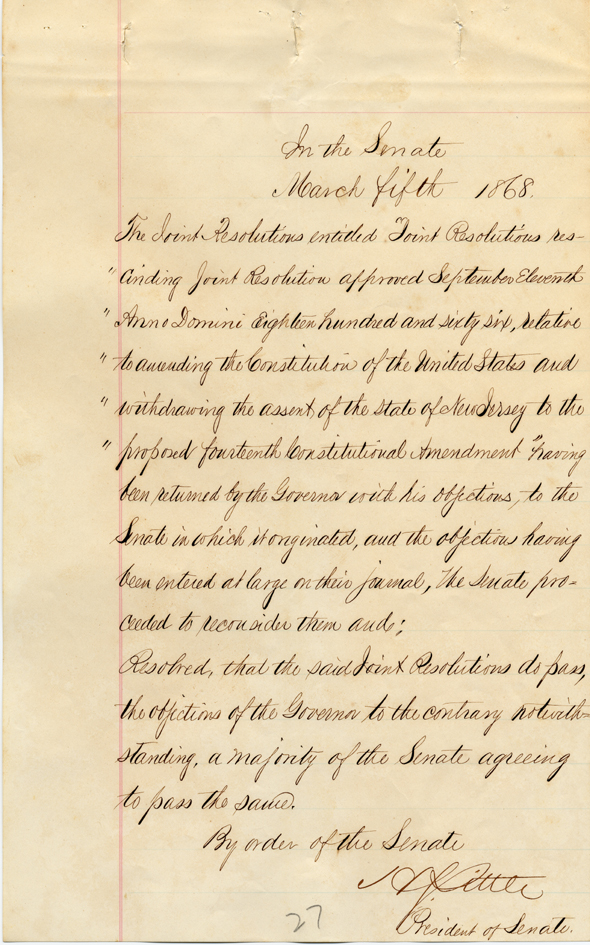 In the Senate
March fifth 1868.
The Joint Resolutions entitled "Joint Resolutions res-
" cinding Joint Resolution approved September Eleventh
" Anno Domini Eighteen hundred and sixty six, relative
" to amending the Constitution of the United States and
" withdrawing the assent, of the State of New Jersey to the
" proposed fourteenth Constitutional Amendment "having
been returned by the Governor with his objections, to the
Senate in which it originated, and the objections having
been entered at large on their journal, the Senate pro-
ceeded to reconsider them and;
Resolved, that the said Joint Resolutions do pass,
the objections of the Governor to the contrary notwith-
standing, a majority of the Senate agreeing
to pass the same.
By order of the Senate
President of Senate.
27